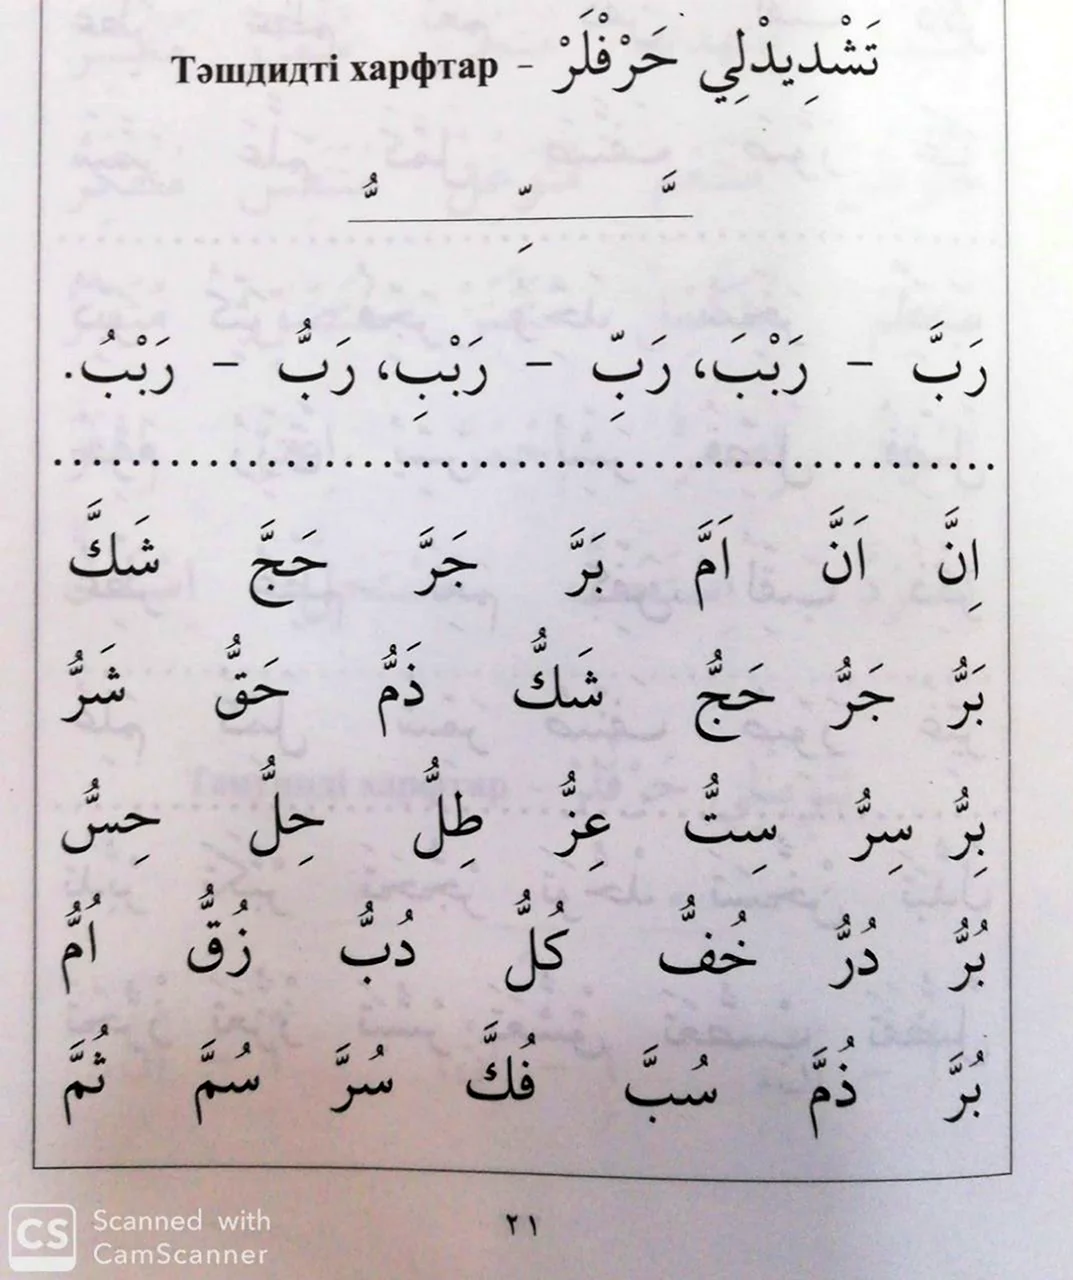 تَشْدِيدْلِي حَرْفْلَرْ - Тәшдидті харфтар
ـَّ ـِّ ـُّ
رَبَّ – رَبْبَ، رَبِّ – رَبْبِ، رَبُّ – رَبْبُ.
اِنَّ اَنَّ اَمَّ بَرَّ جَرَّ حَجَّ شَكَّ
بَرُّ جَرُّ حَجُّ شَكُّ ذَمُّ حَقُّ شَرُّ
بِرُّ سِرُّ سِتُّ عِزُّ طِلُّ حِلُّ حِسُّ
بُرُّ دُرُّ خُفُّ كُلُّ دُبُّ زُقُّ اُمُّ
بُرَّ ذُمَّ سُبَّ فُكَّ سُرَّ سُمَّ ثُمَّ
٢١
CS Scanned with
CamScanner